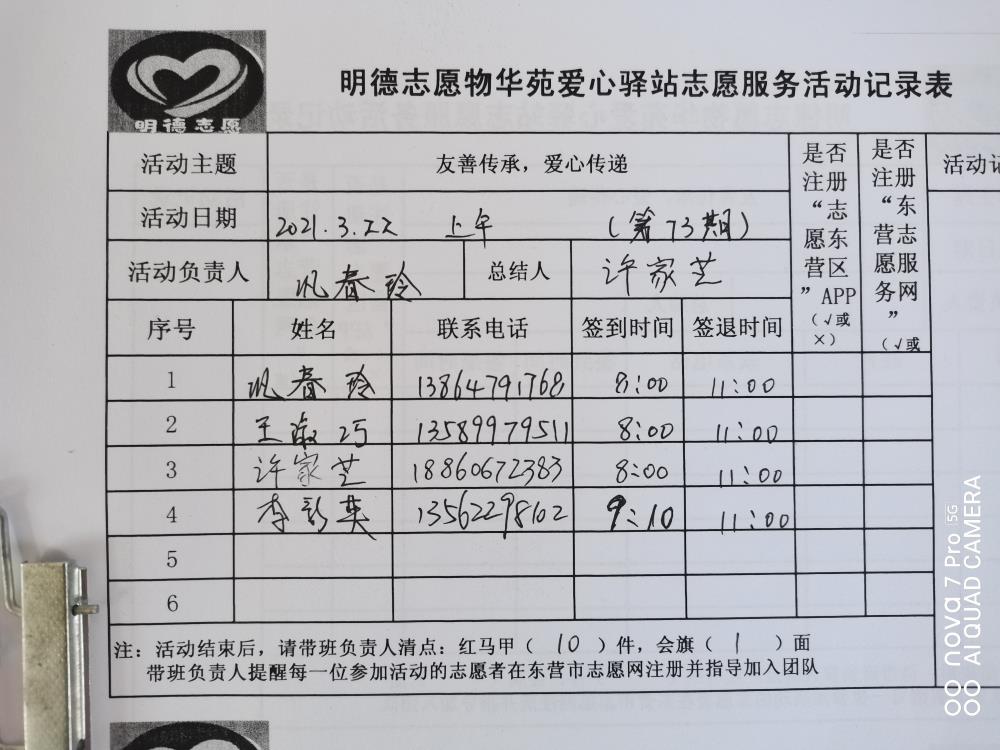 明德志愿
明德志愿物华苑爱心驿站志愿服务活动记录表
活动主题 友善传承，爱心传递 是否注册“志愿东营区”APP（√或×） 是否注册“东营志愿服务网”（√或 活动记
活动日期 2021.3.22 上午 （第73期）
活动负责人 巩春玲 总结人 许家芝
序号 姓名 联系电话 签到时间 签退时间
1 巩春玲 13864791768 8:00 11:00
2 王淑巧 13589979511 8:00 11:00
3 许家芝 18860672383 8:00 11:00
4 李彩英 13562298102 9:10 11:00
5
6
注：活动结束后，请带班负责人清点：红马甲（ 10 ）件，会旗（ 1 ）面
带班负责人提醒每一位参加活动的志愿者在东营市志愿网注册并指导加入团队
nova 7 Pro 5G
AI QUAD CAMERA